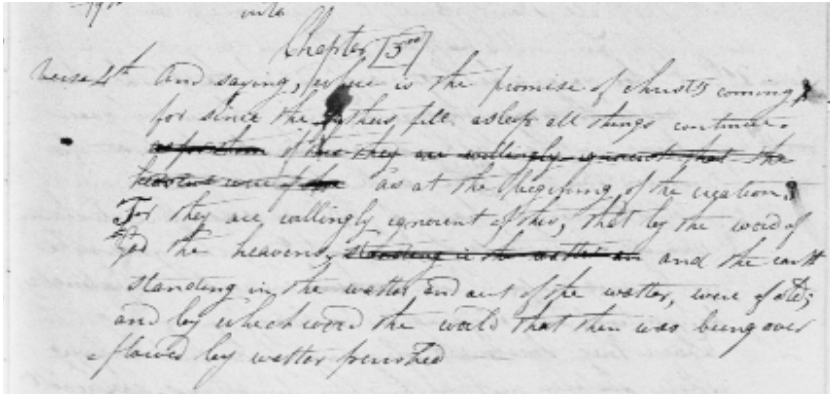 Chapter [3rd]
verse 4th And saying, where is the promise of christs coming?
for since the fathers fell asleep all things continue
of this they are willingly ignorant that the
heavens were of as at the beginning of the creation.
For they are willingly ignorent of this, that by the word of
God the heavens, standing in the watter an and the earth
standing in the watter and out of the watter, were of old;
and by which word the world that then was being over
flowed by watter perished